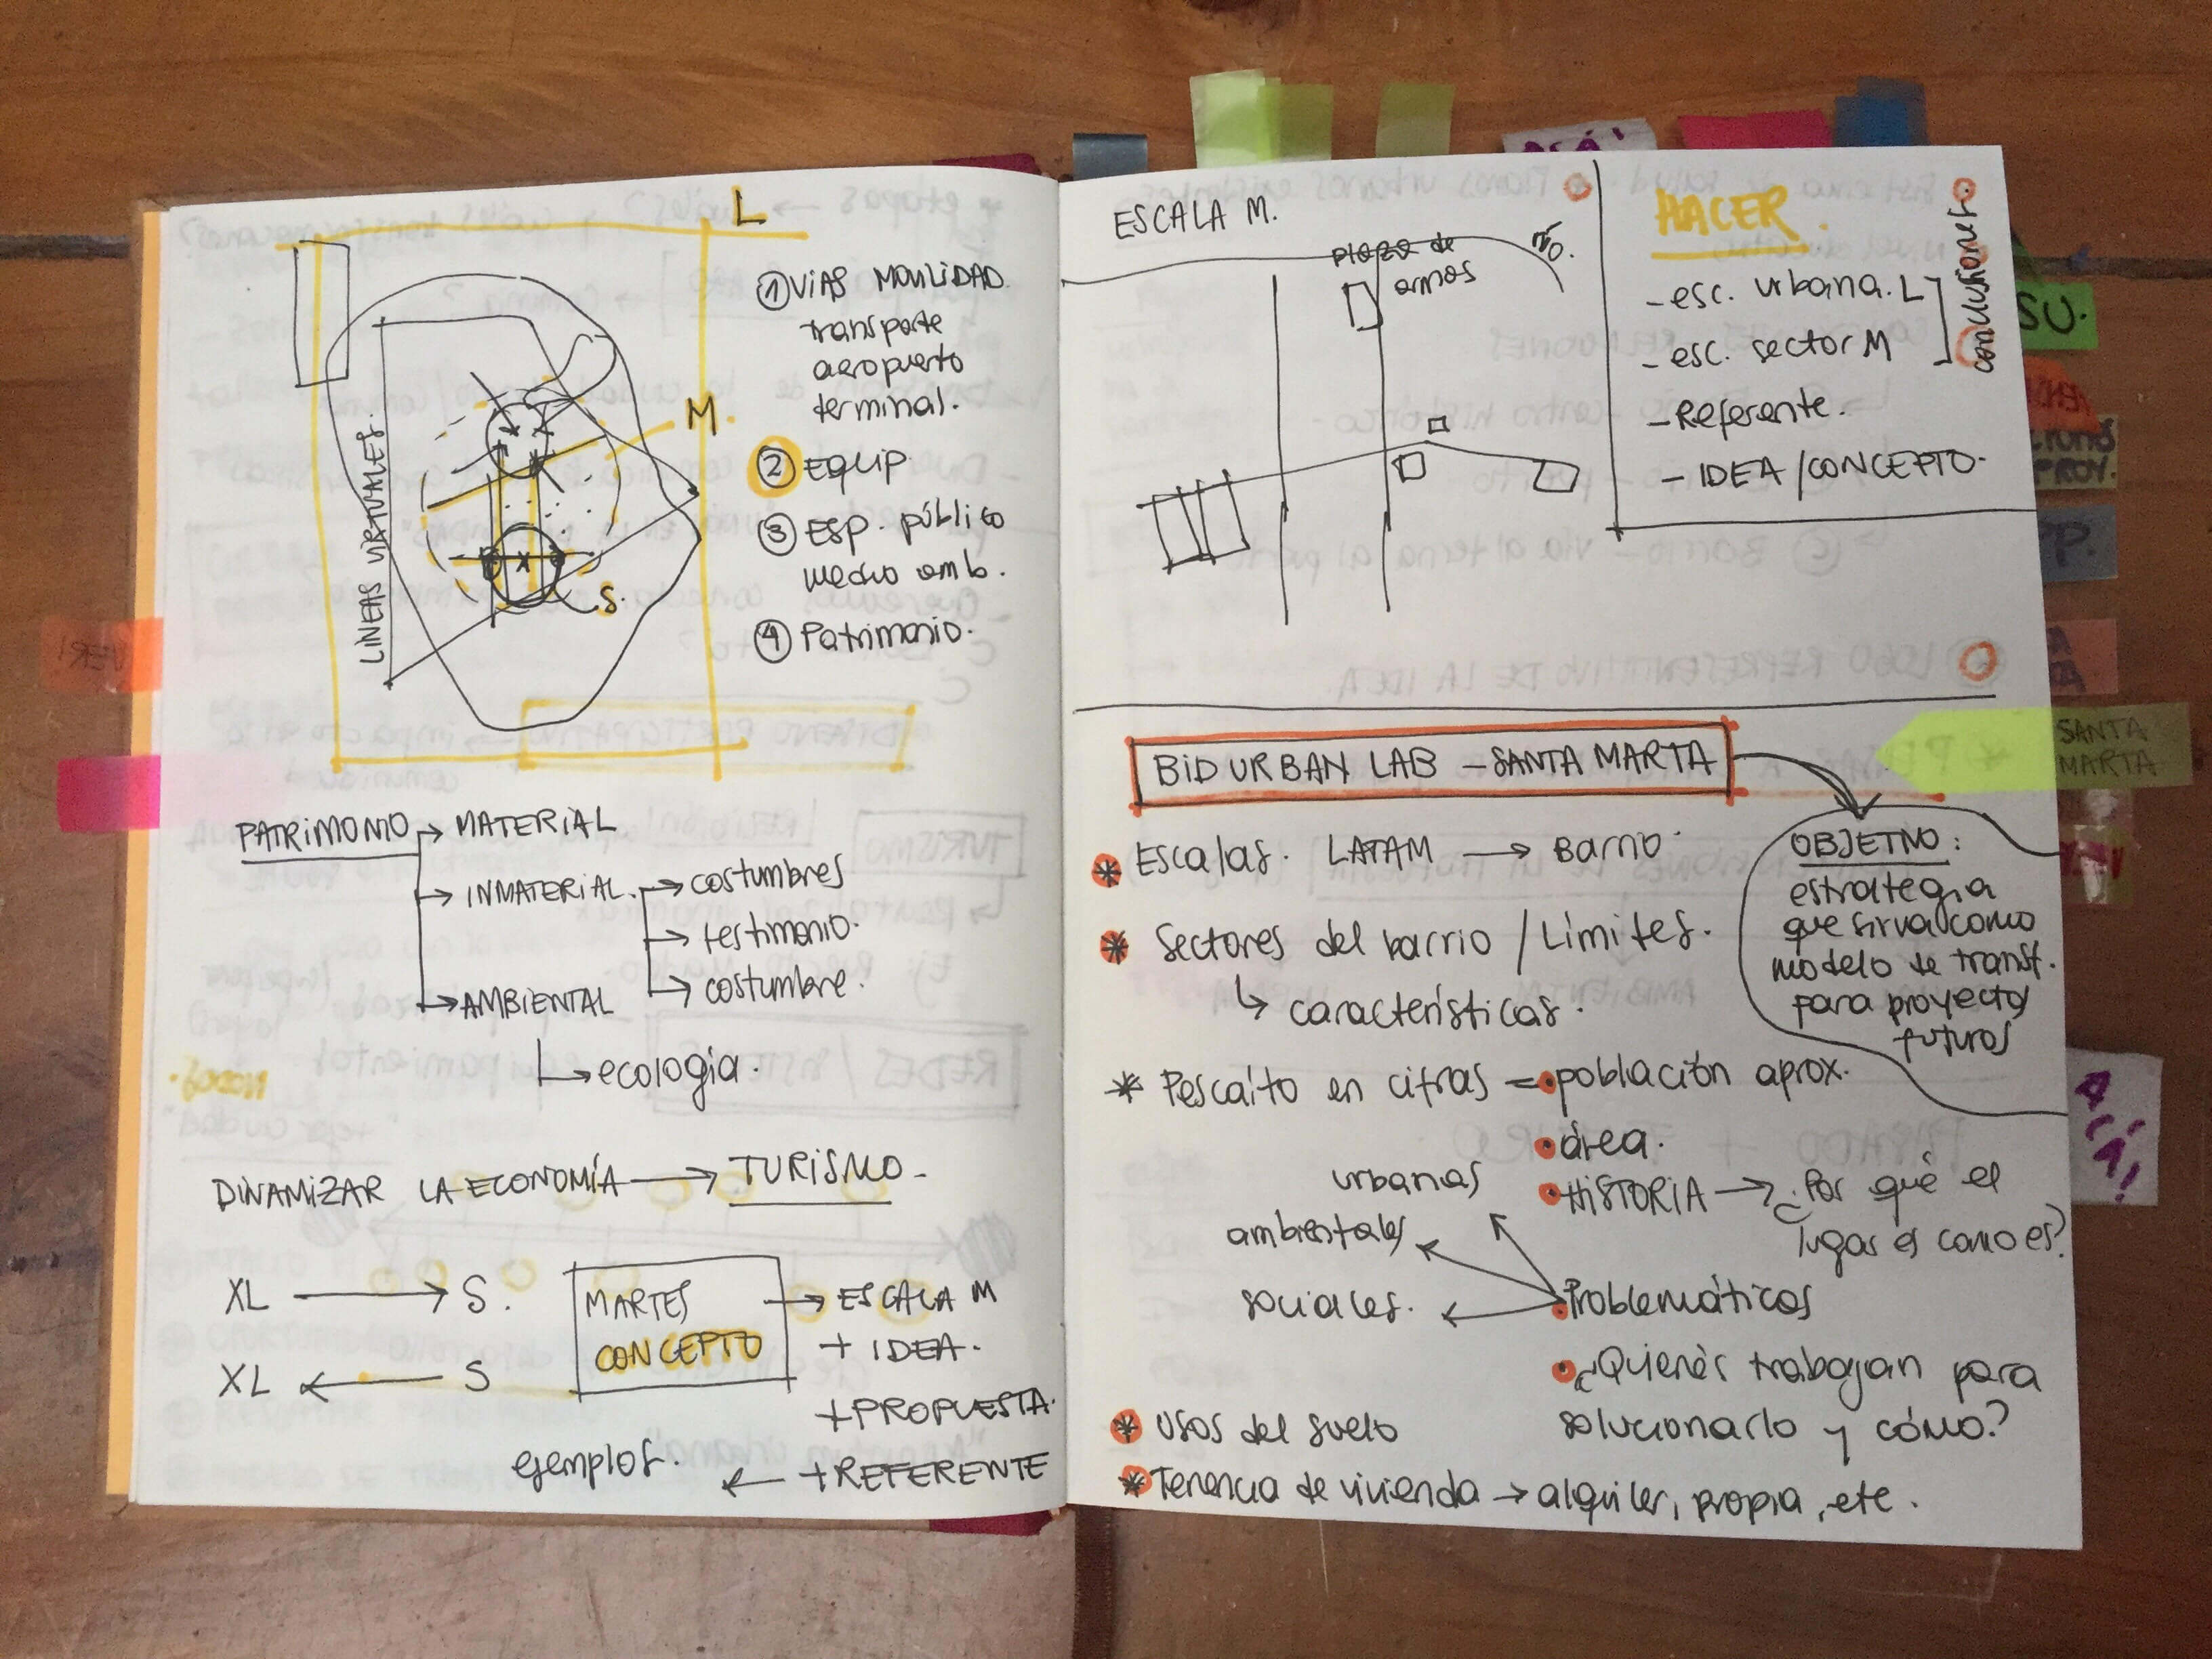 L
① VÍAS MOVILIDAD.
transporte
aeropuerto
terminal.
② EQUIP.
③ ESP. público
medio amb.
④ Patrimonio.
LÍNEAS VIRTUALES.
M.
S.
PATRIMONIO → MATERIAL
→ INMATERIAL. → costumbres
→ testimonio.
→ costumbre.
→ AMBIENTAL
↳ ecología.
DINAMIZAR LA ECONOMÍA → TURISMO -
XL → S.
XL ← S
MARTES
CONCEPTO
→ ESCALA M
+ IDEA.
+ PROPUESTA.
ejemplos. ← + REFERENTE
ESCALA M.
plaza de
armas
HACER.
- esc. urbana. L
- esc. sector M
- Referente.
- IDEA / CONCEPTO.
conclusiones
BID URBAN LAB - SANTA MARTA
OBJETIVO:
estrategia
que sirva como
modelo de transf.
para proyectos
futuros
* Escalas. LATAM → Barrio.
* Sectores del barrio / Límites.
↳ características.
* Pescaíto en cifras = • población aprox.
• área.
• HISTORIA → ¿Por qué el
lugar es como es?
• Problemáticas
urbanas
ambientales
sociales.
• ¿Quienes trabajan para
solucionarlo y cómo?
* Usos del suelo
* Tenencia de vivienda → alquiler, propia, etc.
SU.
PP.
PROY.
SANTA
MARTA
ACÁ!
VER!